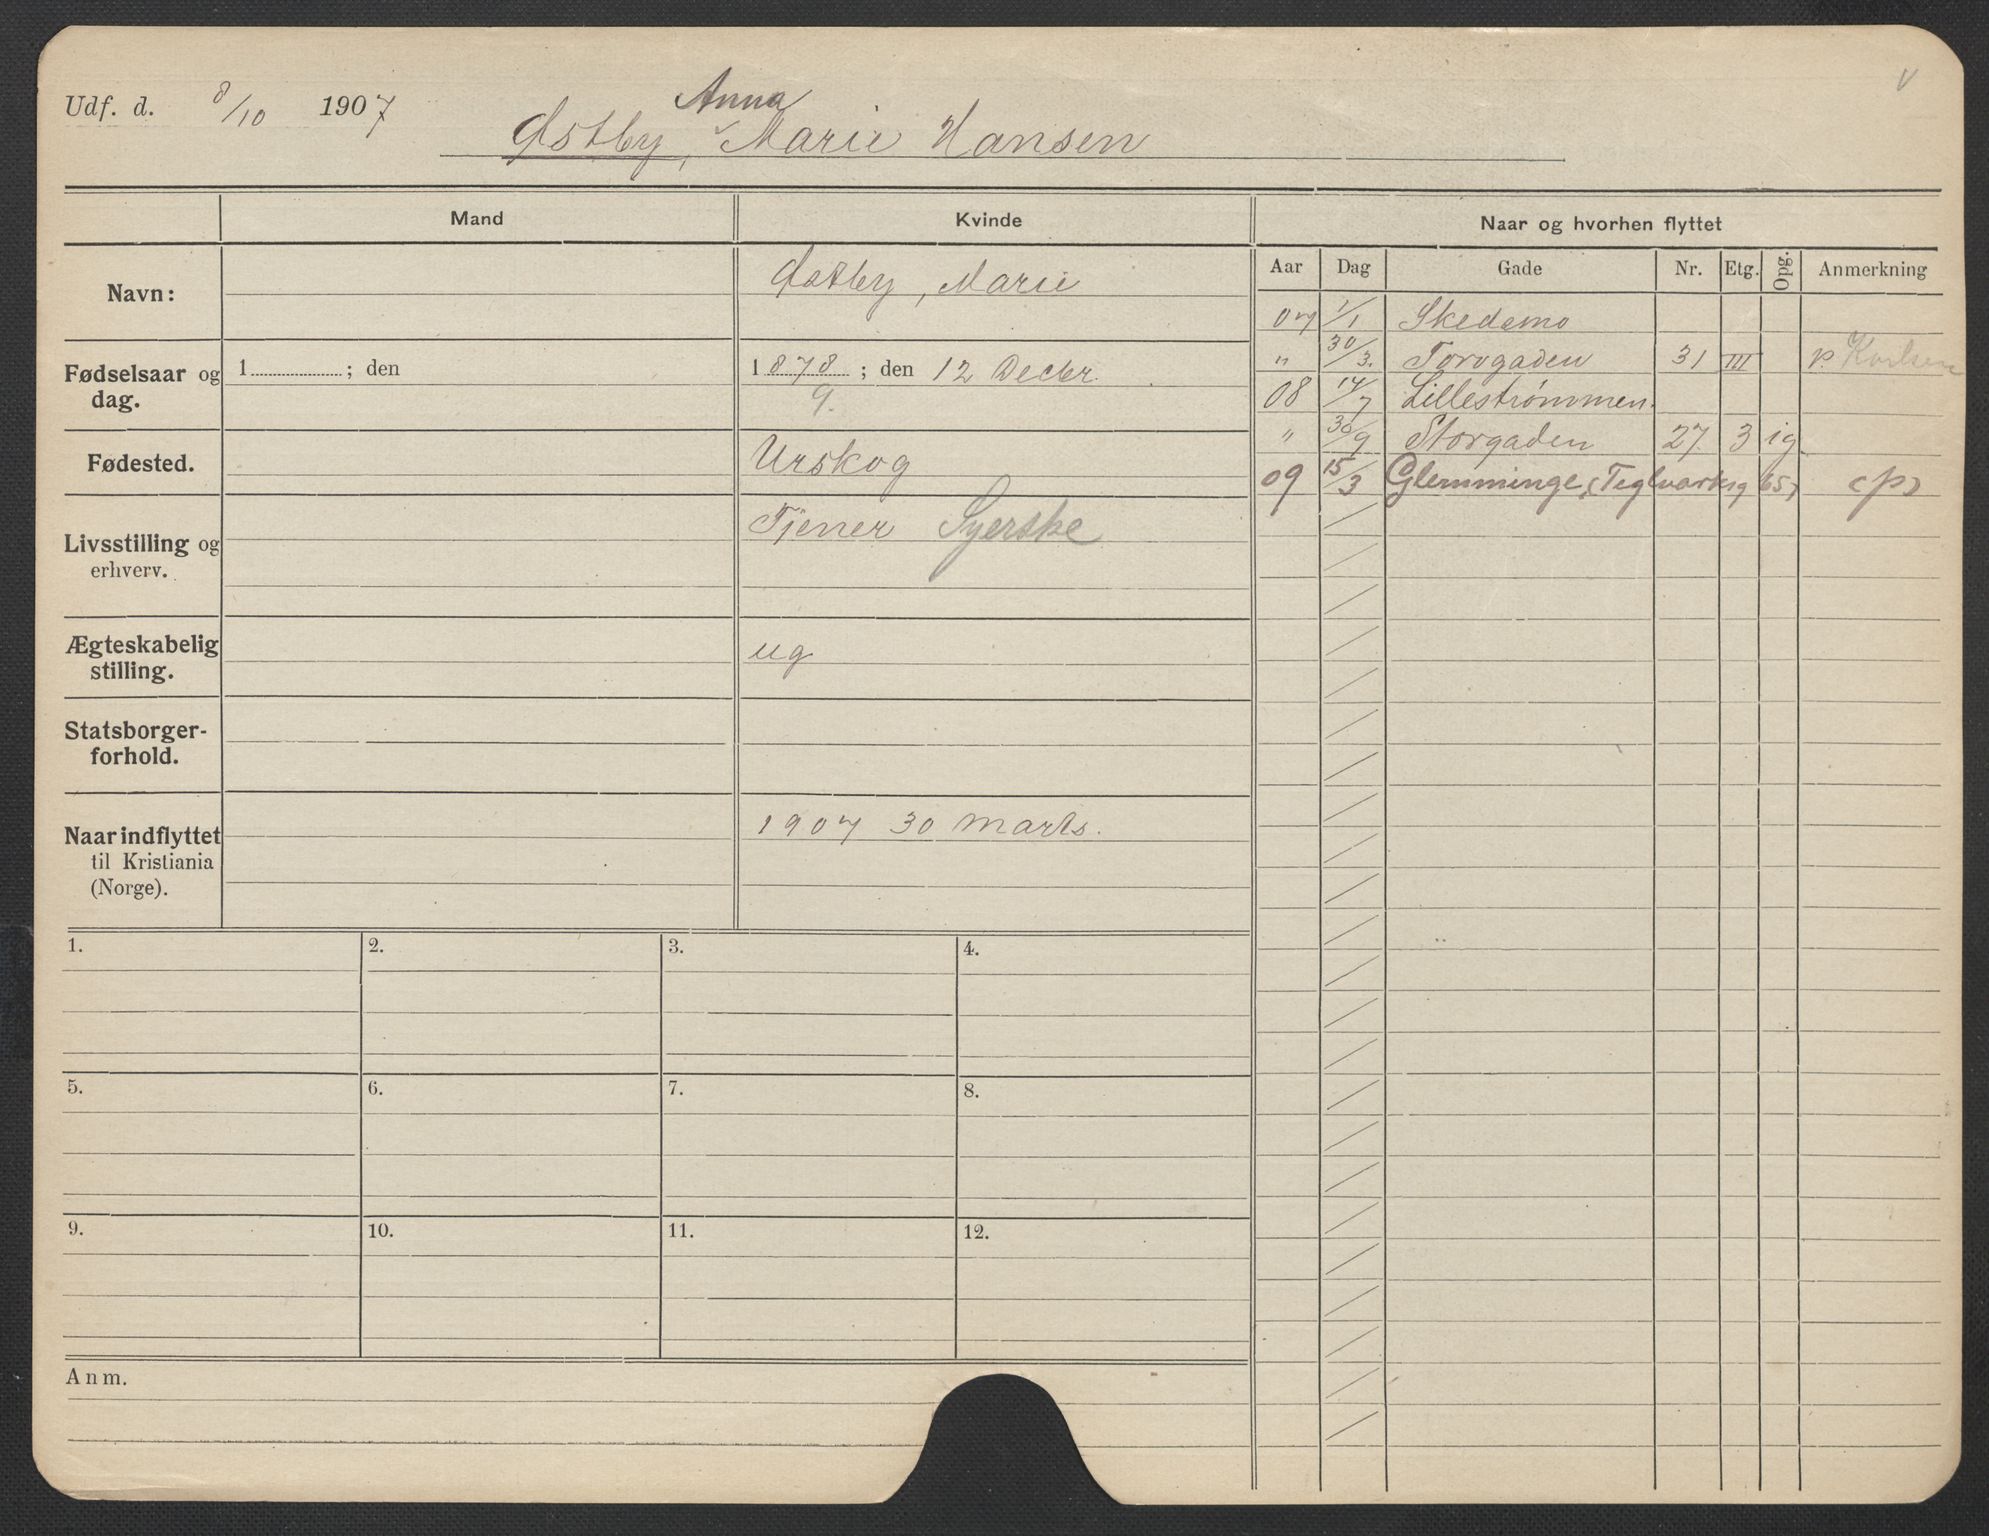 Udf. d. 8/10 1907
Anna
Østby, Marie Hansen
Mand
Kvinde
Naar og hvorhen flyttet
Aar Dag Gade Nr. Etg. Opg. Anmerkning
Navn:
Østby, Marie
Fødselsaar og dag.
1 ; den
1878 ; den 12 Decbr.
9.
Fødested.
Urskog
Livsstilling og
erhverv.
Tjener Syerske
Ægteskabelig
stilling.
ug
Statsborger-
forhold.
Naar indflyttet
til Kristiania
(Norge).
1907 30 Marts.
07 1/1 Skedsmo
" 30/3. Torvgaden 31 III p. Karlsen
08 14/7 Lillestrømmen.
" 30/9 Storgaden 27 3 ig
09 15/3 Glemminge, (Teglværksg 65) (p)
1. 2. 3. 4.
5. 6. 7. 8.
9. 10. 11. 12.
Anm.